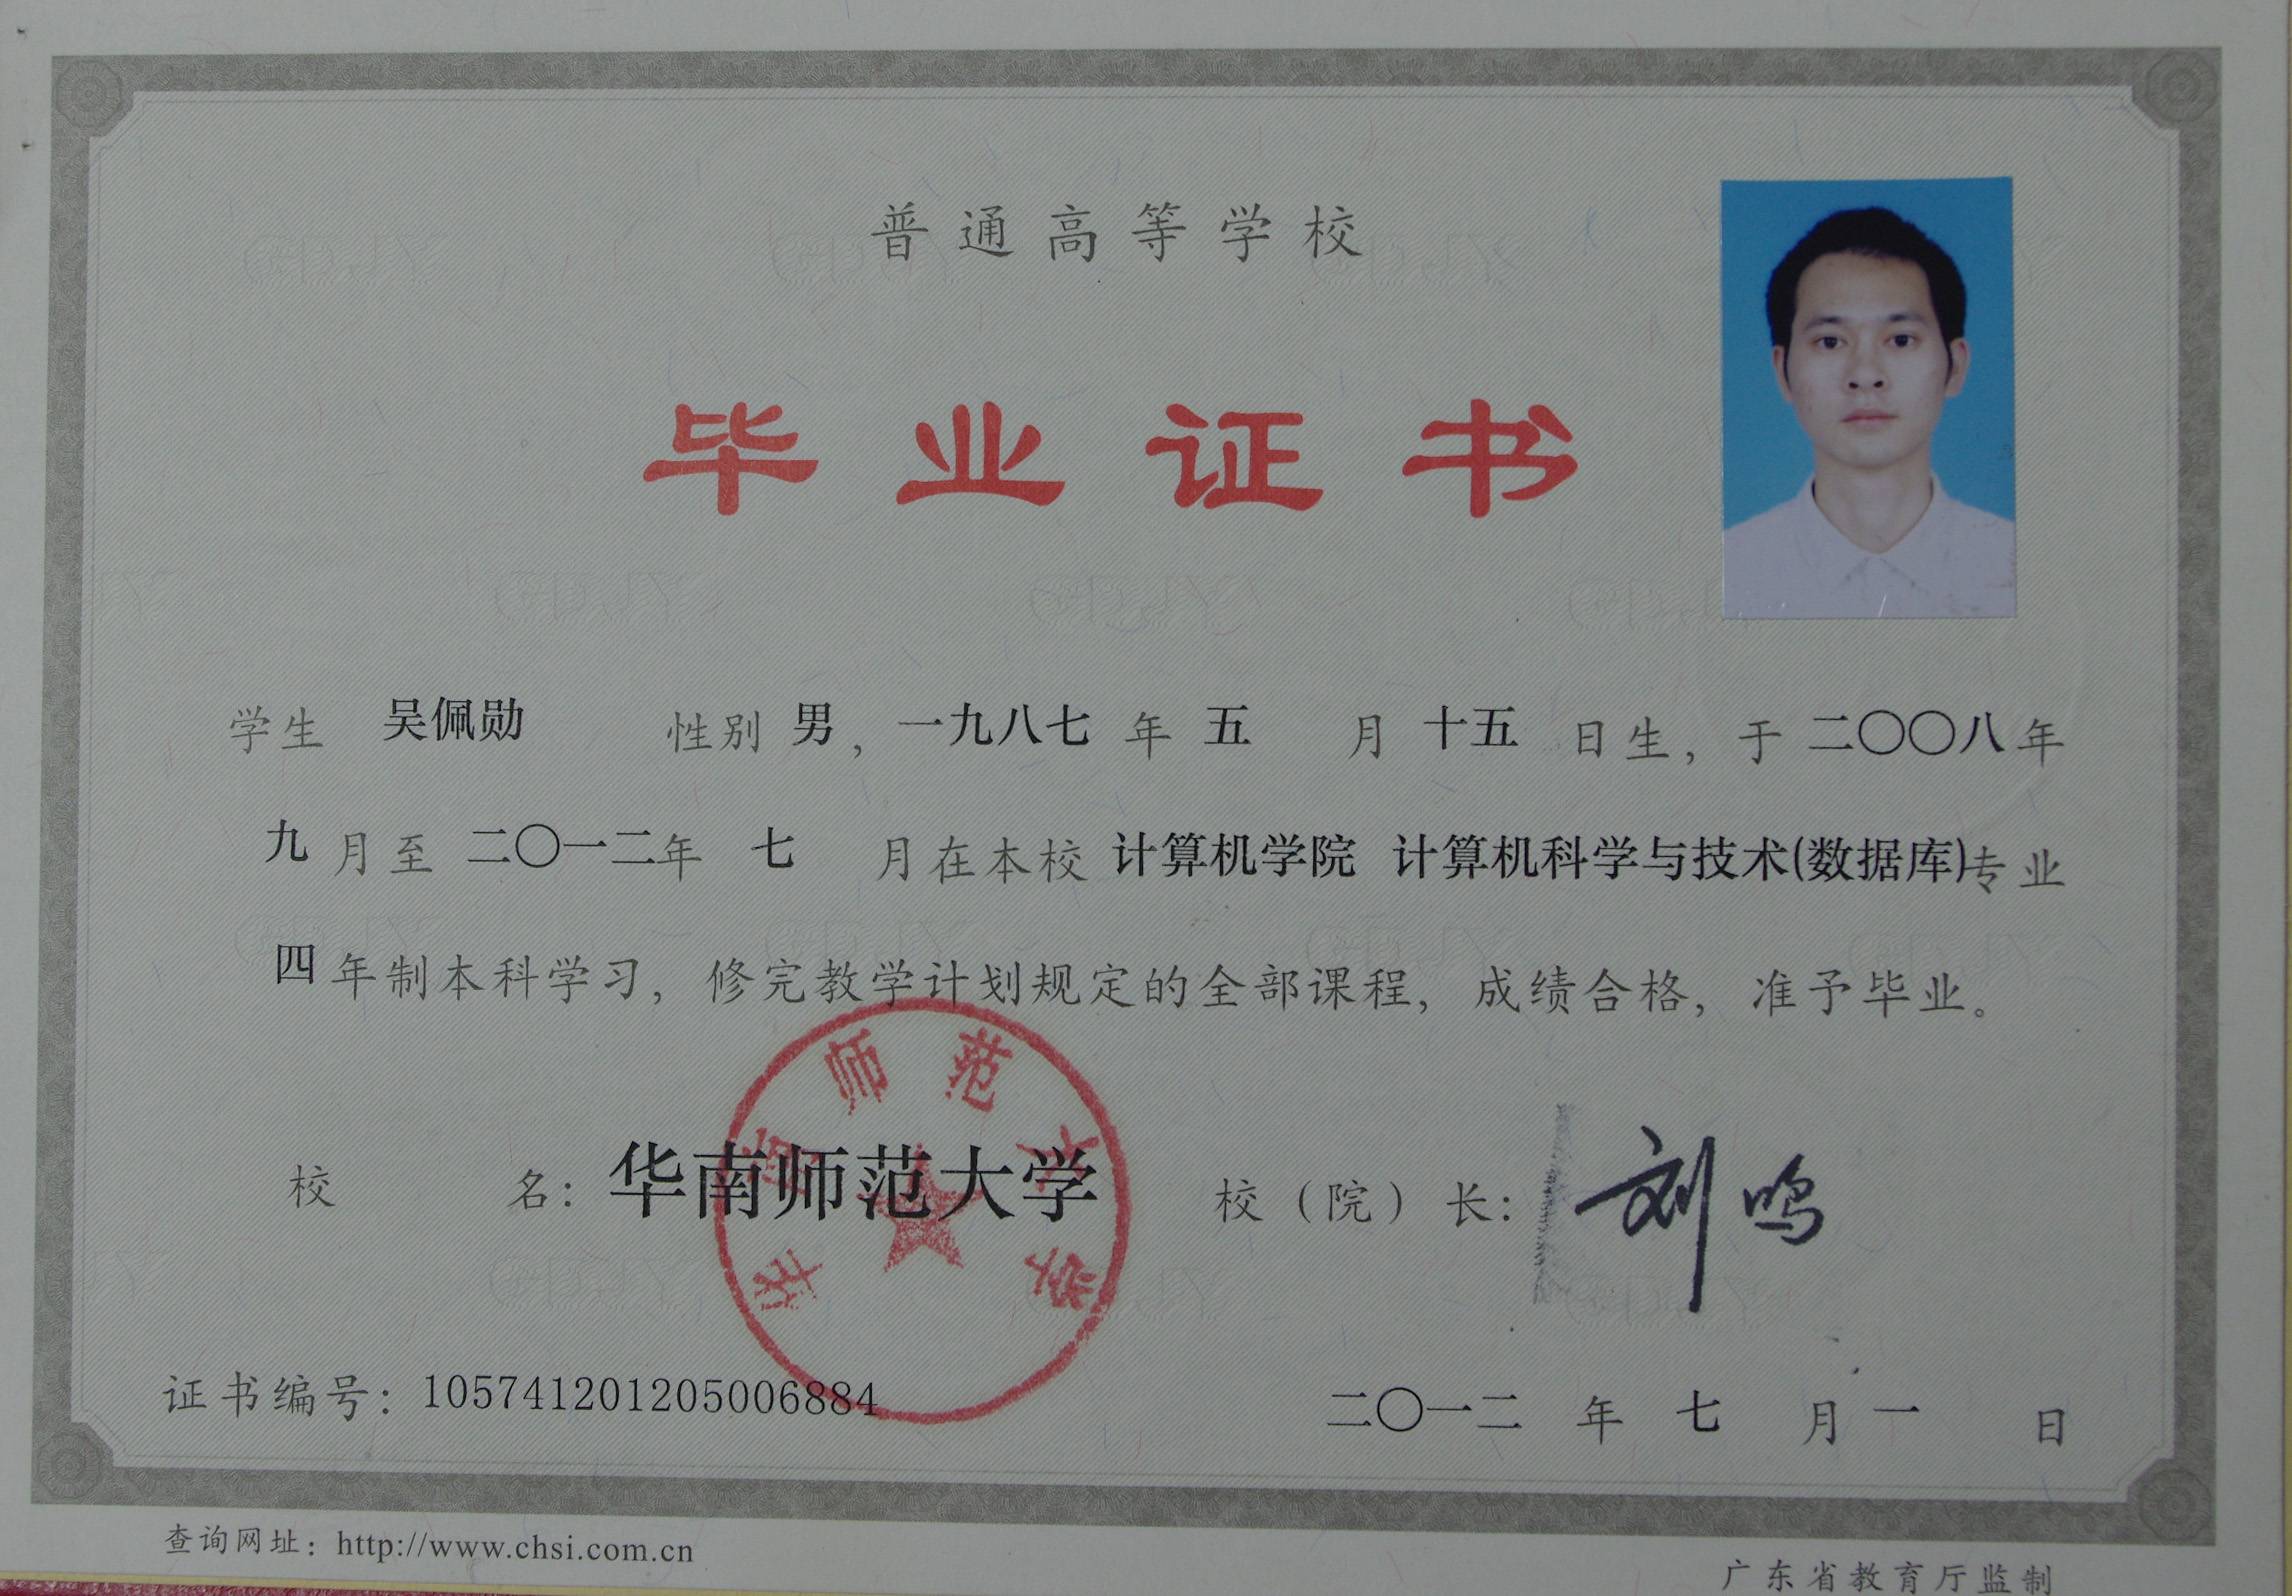 普通高等学校
毕业证书
学生 吴佩勋 性别 男，一九八七 年 五 月 十五 日生，于 二〇〇八 年
九 月至 二〇一二年 七 月在本校 计算机学院 计算机科学与技术(数据库)专业
四年制本科学习，修完教学计划规定的全部课程，成绩合格，准予毕业。
华南师范大学
校 名：华南师范大学 校（院）长：刘鸣
证书编号：105741201205006884 二〇一二 年 七 月 一 日
查询网址：http://www.chsi.com.cn
广东省教育厅监制